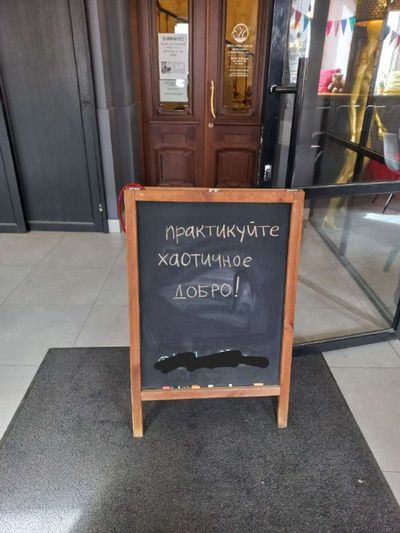 практикуйте
хаотичное
ДОБРО!